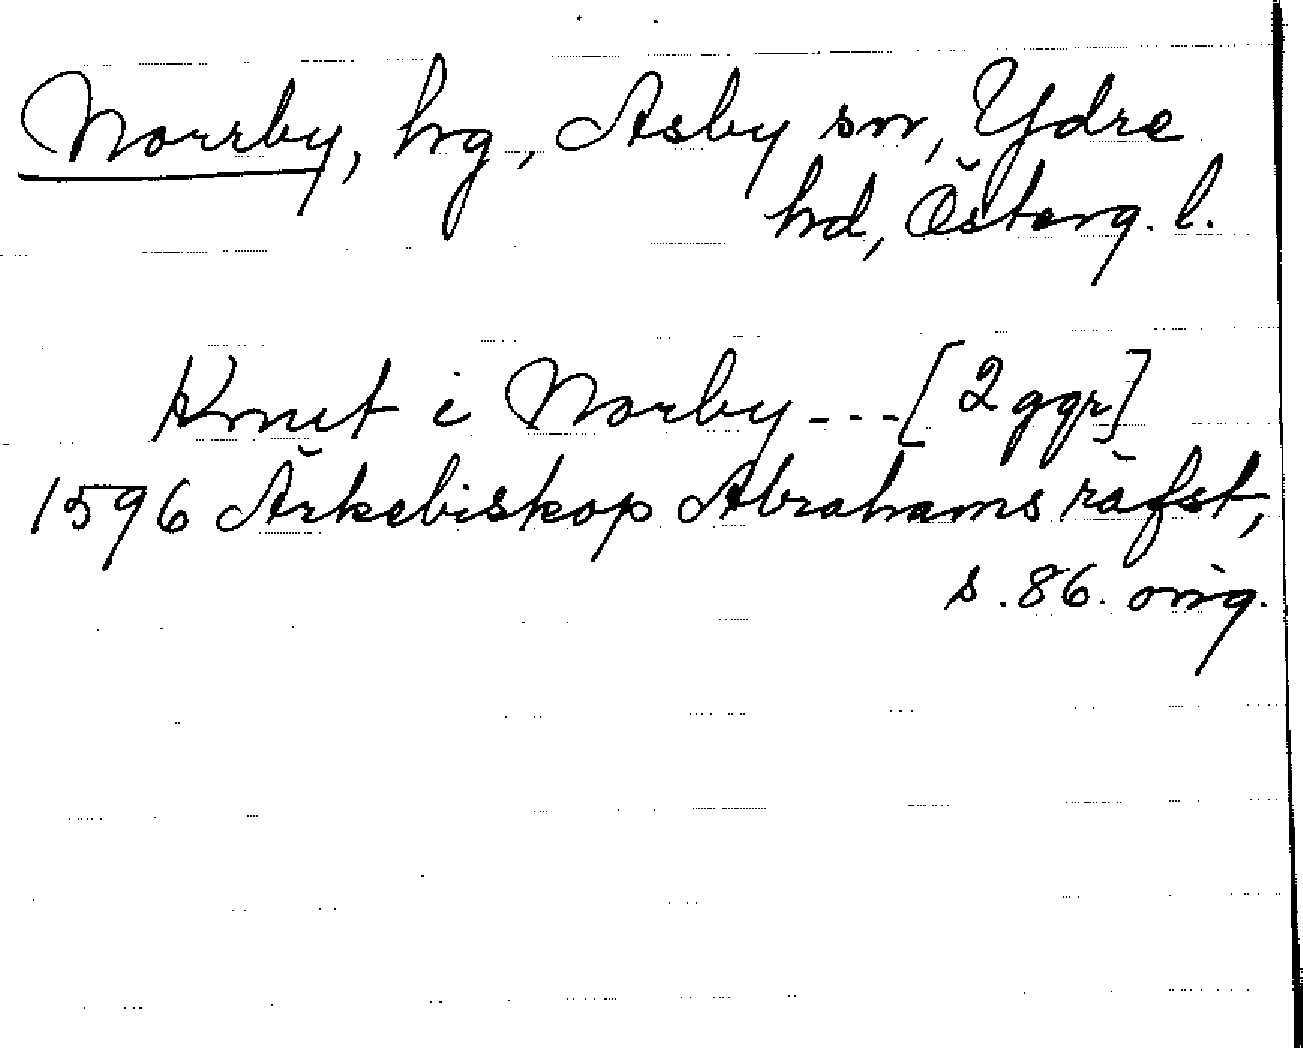 Norrby, hg, Asby sn, Ydre
hd, Österg. l.
Knut i Norby --- [2 ggr]
1596 Ärkebiskop Abrahams räfst,
s. 86. orig.